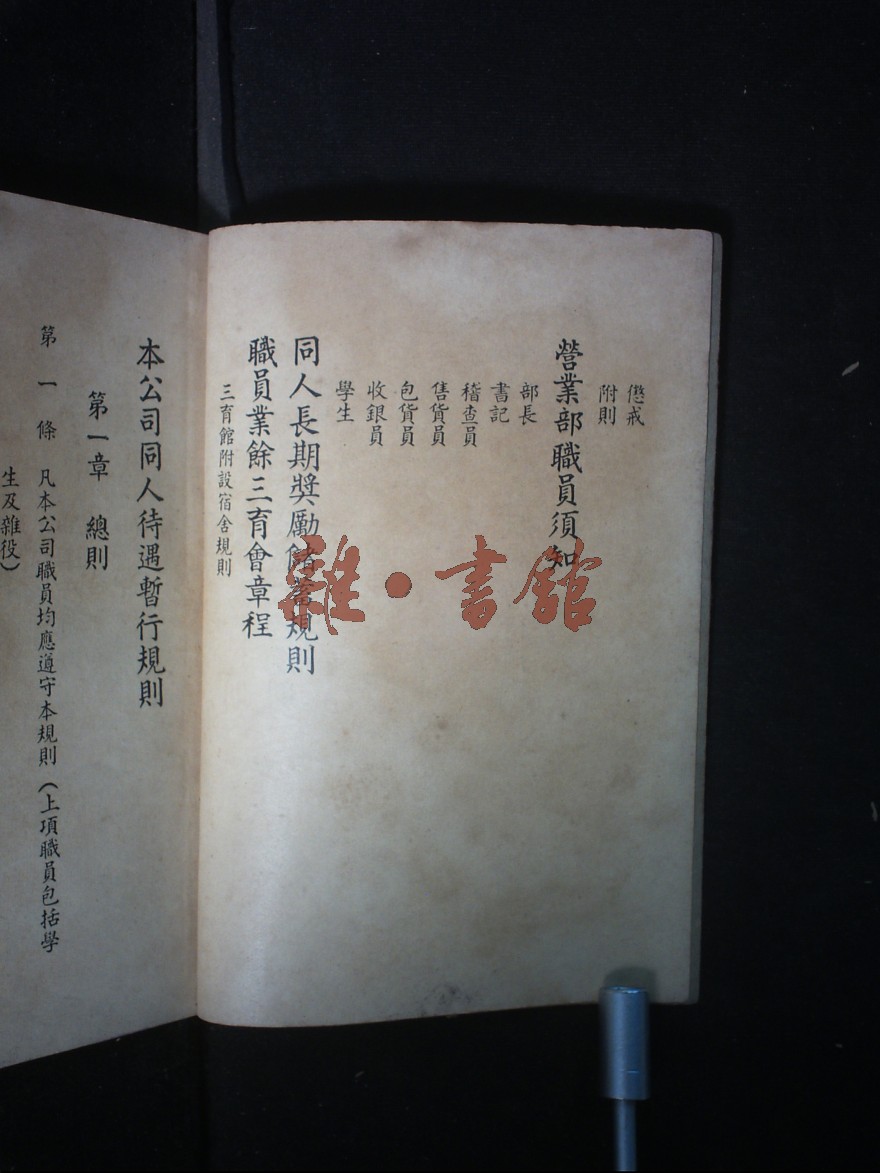 懲戒
附則
營業部職員須知
部長
書記
稽查員
售貨員
包貨員
收銀員
學生
同人長期獎勵儲蓄規則
職員業餘三育會章程
三育館附設宿舍規則
本公司同人待遇暫行規則
第一章 總則
第一條 凡本公司職員均應遵守本規則（上項職員包括學
生及雜役）
雜·書館